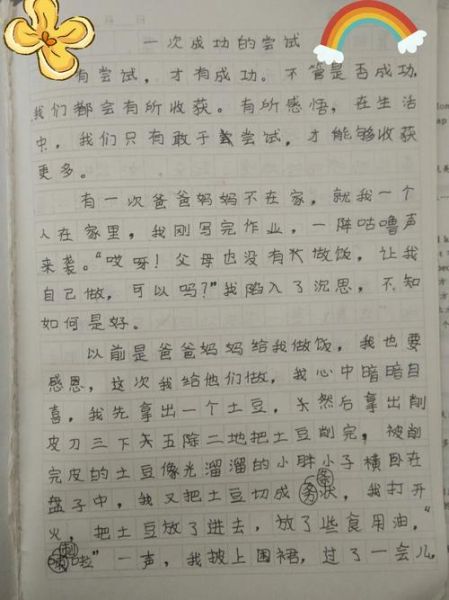 一次成功的尝试
有尝试，才有成功。不管是否成功，
我们都会有所收获。有所感悟，在生活
中，我们只有敢于尝试，才能够收获
更多。
有一次爸爸妈妈不在家，就我一个
人在家里，我刚写完作业，一阵咕噜声
来袭。“哎呀！父母也没有人做饭，让我
自己做，可以吗？”我陷入了沉思，不知
如何是好。
以前是爸爸妈妈给我做饭，我也要
感恩，这次我给他们做，我心中暗暗自
喜，我先拿出一个土豆，然后拿出削
皮刀三下五除二地把土豆削完，被削
完皮的土豆像光溜溜的小胖小子横卧在
盘子中，我又把土豆切成条状，我打开
火，把土豆放了进去，放了些食用油，“
啦”一声，我披上围裙，过了一会儿，